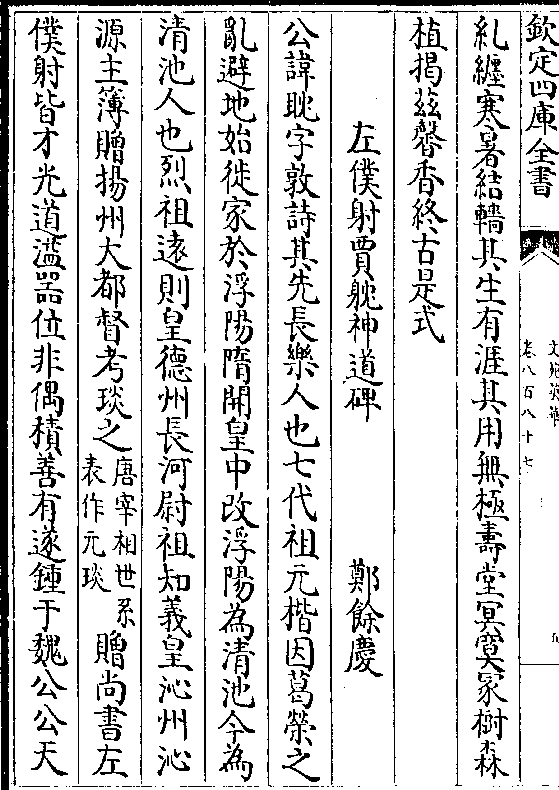 欽定四庫全書
文苑英華
卷八百八十七
五
糺纏寒暑結轖其生有涯其用無極壽堂冥寞冢樹森
植揭兹馨香終古是式
左僕射賈躭神道碑
鄭餘慶
公諱耽字敦詩其先長樂人也七代祖元楷因葛榮之
亂避地始徙家於浮陽隋開皇中改浮陽為清池今為
清池人也烈祖逺則皇德州長河尉祖知義皇沁州沁
源主簿贈揚州大都督考琰之唐宰相世系表作元琰贈尚書左
僕射皆才光道滥器位非偶積善有遂鍾于魏公公天